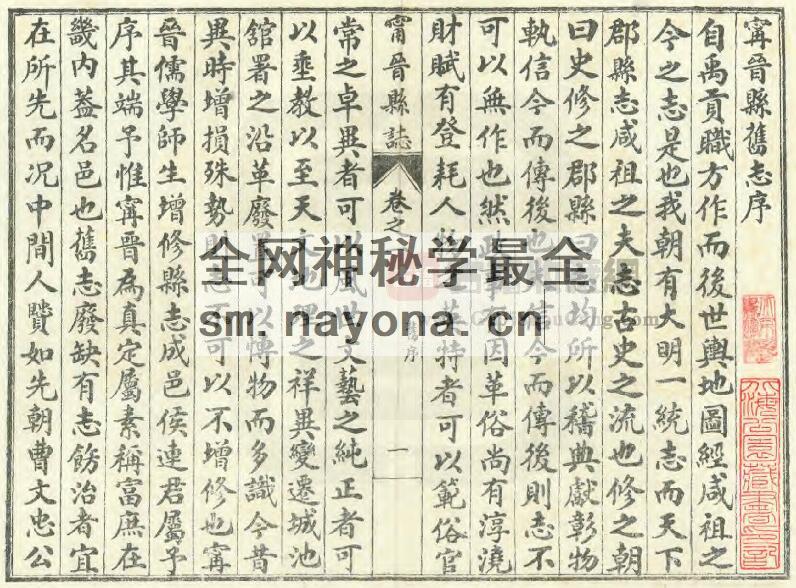 甯晉縣舊志序
自禹貢職方作而後世輿地圖經咸祖之
今之志是也我朝有大明一統志而天下
郡縣志咸祖之夫志古史之流也修之朝
曰史修之郡縣曰均所以稽典獻彰物
執信今而傳後也信今而傳後則志不
可以無作也然事因革俗尚有淳澆
財賦有登耗人英特者可以範俗官
甯晉縣誌
卷之
舊序
一
常之卓異者可以風世文藝之純正者可
以垂教以至天文地理之祥異變遷城池
舘署之沿革廢置可以博物而多識今昔
異時增損殊勢則志可以不增修也甯
晉儒學師生增修縣志成邑侯連君屬予
序其端予惟甯晉為真定屬素稱富庶在
畿内葢名邑也舊志廢缺有志飭治者宜
在所先而况中間人賢如先朝曹文忠公
全网神秘学最全
sm.nayona.cn